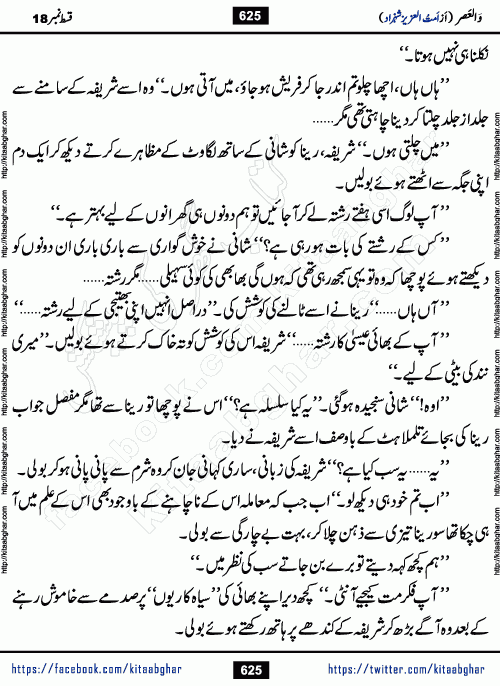 قسط نمبر 18
625
وَالعَصر (از اَمتُ العزیز شہزاد)
نکلنا ہی نہیں ہوتا۔‘‘
’’ہاں ہاں، اچھا چلو تم اندر جا کر فریش ہو جاؤ، میں آتی ہوں۔‘‘ وہ اسے شریفہ کے سامنے سے
جلد از جلد چلتا کر دینا چاہتی تھی مگر......
’’میں چلتی ہوں۔‘‘ شریفہ، رینا کو شانی کے ساتھ لگاوٹ کے مظاہرے کرتے دیکھ کر ایک دم
اپنی جگہ سے اٹھتے ہوئے بولیں۔
’’آپ لوگ اسی ہفتے رشتہ لے کر آ جائیں تو ہم دونوں ہی گھرانوں کے لیے بہتر ہے۔‘‘
’’کس کے رشتے کی بات ہو رہی ہے؟‘‘ شانی نے خوش گواری سے باری باری ان دونوں کو
دیکھتے ہوئے پوچھا کہ وہ تو یہی سمجھ رہی تھی کہ ہوں گی بھابھی کی کوئی سہیلی...... مگر رشتہ......
’’آں ہاں......‘‘ رینا نے اسے ٹالنے کی کوشش کی۔ ’’دراصل انہیں اپنی بھتیجی کے لیے رشتہ......‘‘
’’آپ کے بھائی عیسیٰ کا رشتہ......‘‘ شریفہ اس کی کوشش کو تہ خاک کرتے ہوئے بولیں۔ ’’میری
نند کی بیٹی کے لیے۔‘‘
’’اوہ!‘‘ شانی سنجیدہ ہو گئی۔ ’’یہ کیا سلسلہ ہے؟‘‘ اس نے پوچھا تو رینا سے تھا مگر مفصل جواب
رینا کی بجائے تلملاہٹ کے باوصف اسے شریفہ نے دیا۔
’’یہ...... یہ سب کیا ہے؟‘‘ شریفہ کی زبانی، ساری کہانی جان کر وہ شرم سے پانی پانی ہو کر بولی۔
’’اب تم خود ہی دیکھ لو۔‘‘ اب جب کہ معاملہ اس کے نا چاہنے کے باوجود بھی اس کے علم میں آ
ہی چکا تھا سو رینا تیزی سے ذہن چلا کر، بہت بے چارگی سے بولی۔
’’ہم کچھ کہہ دیتے تو برے بن جاتے سب کی نظر میں۔‘‘
’’آپ فکر مت کیجیے آنٹی۔‘‘ کچھ دیر اپنے بھائی کی ’’سیاہ کاریوں‘‘ پر صدمے سے خاموش رہنے
کے بعد وہ آگے بڑھ کر شریفہ کے کندھے پر ہاتھ رکھتے ہوئے بولی۔
https://facebook.com/kitaabghar
625
https://twitter.com/kitaabghar
http://kitaabghar.com
http://kitaabghar.com
http://kitaabghar.com
http://kitaabghar.com
http://kitaabghar.com
http://kitaabghar.com
http://kitaabghar.com
http://kitaabghar.com